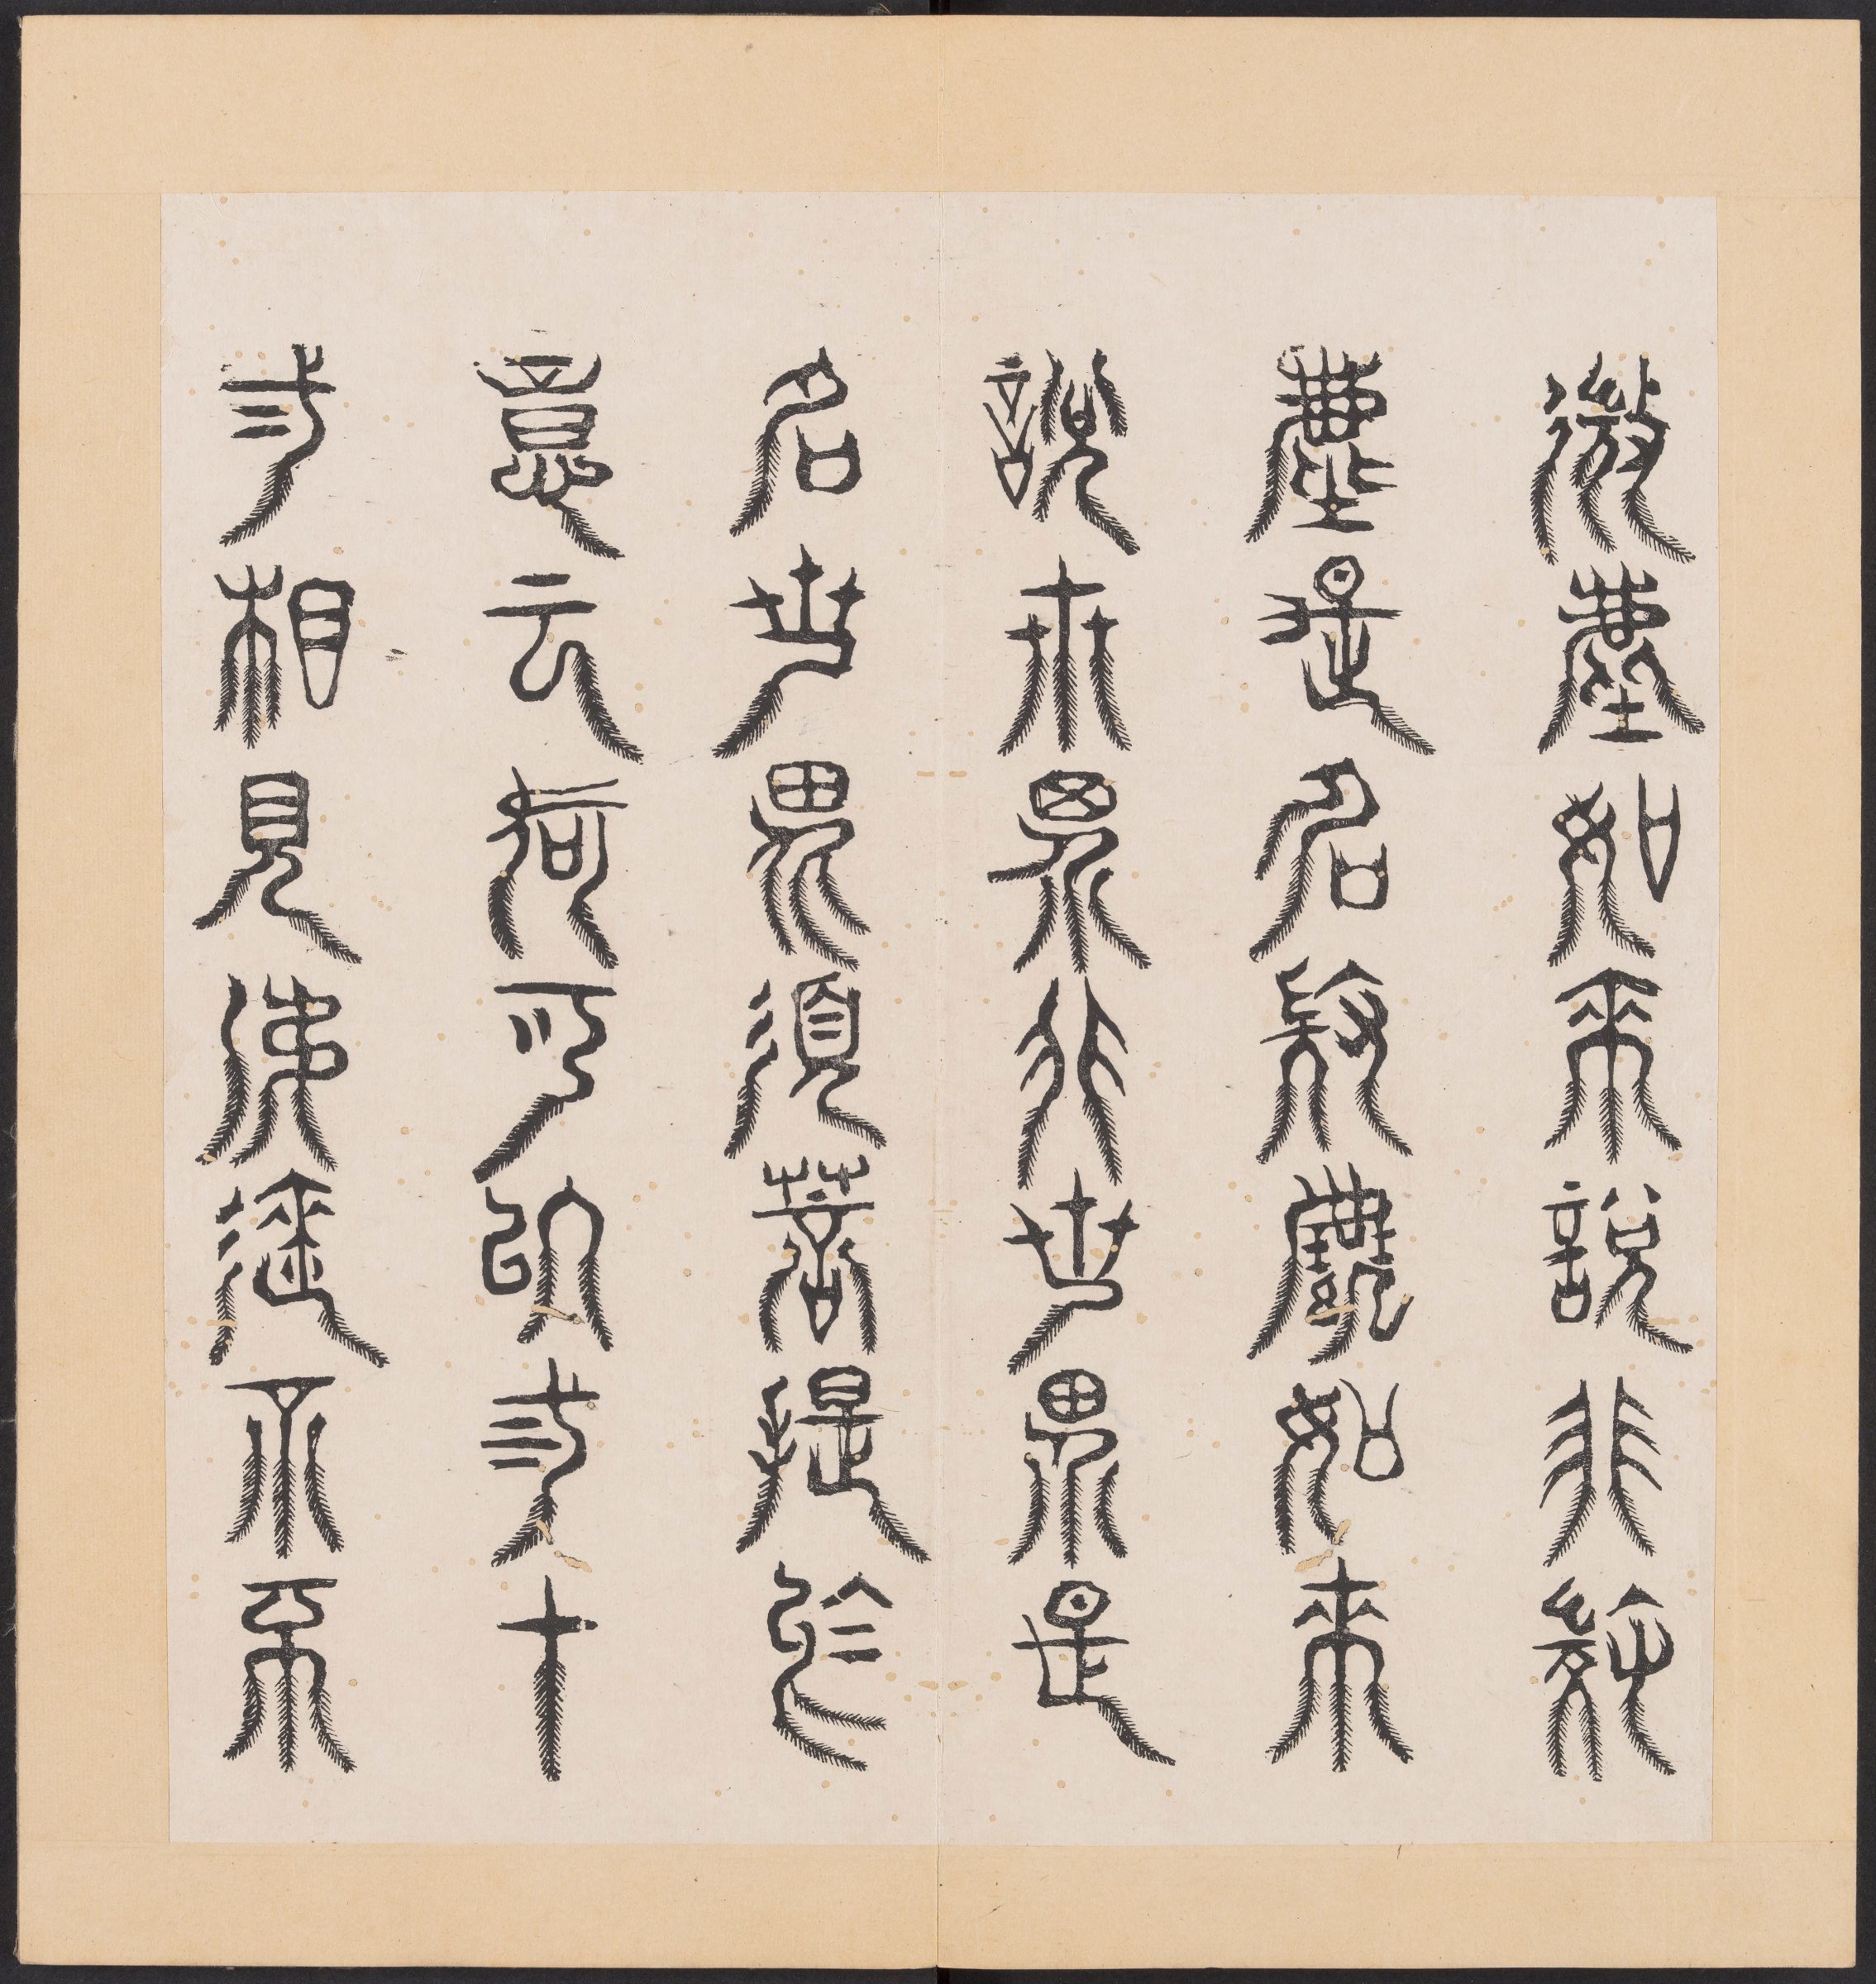 微塵如來說非微
塵是名微塵如來
說世界非世界是
名世界須菩提於
意云何可以三十
二相見如來不不